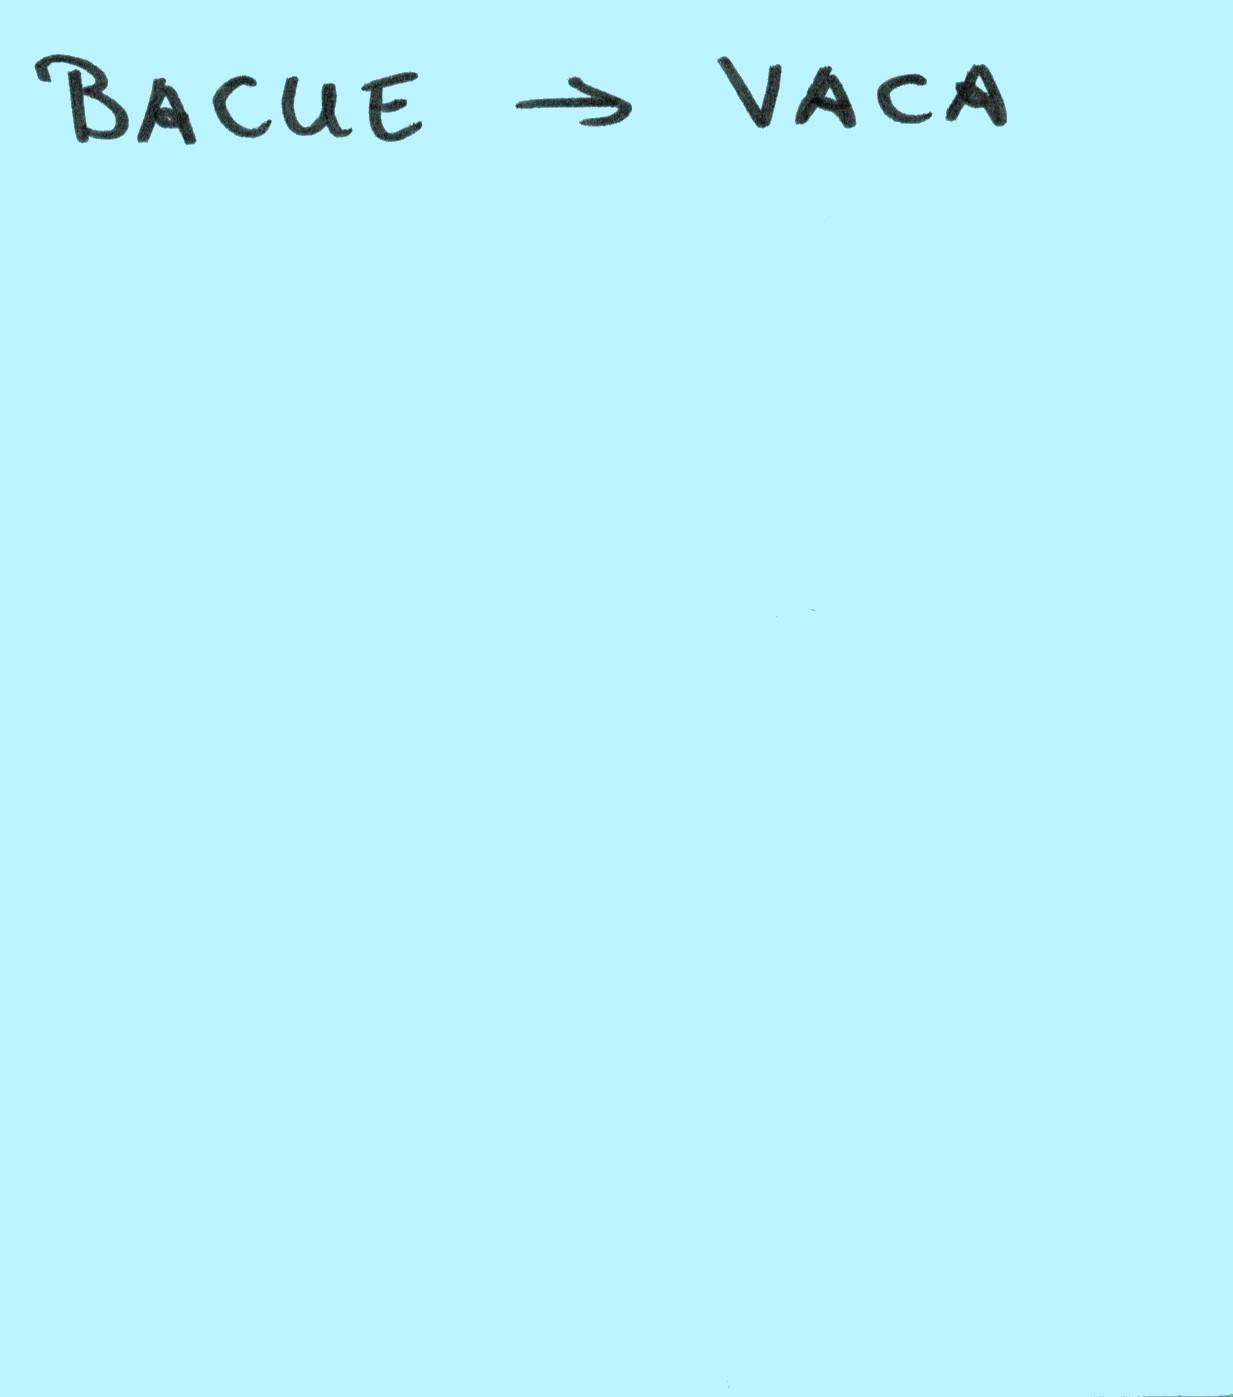 BACUE → VACA